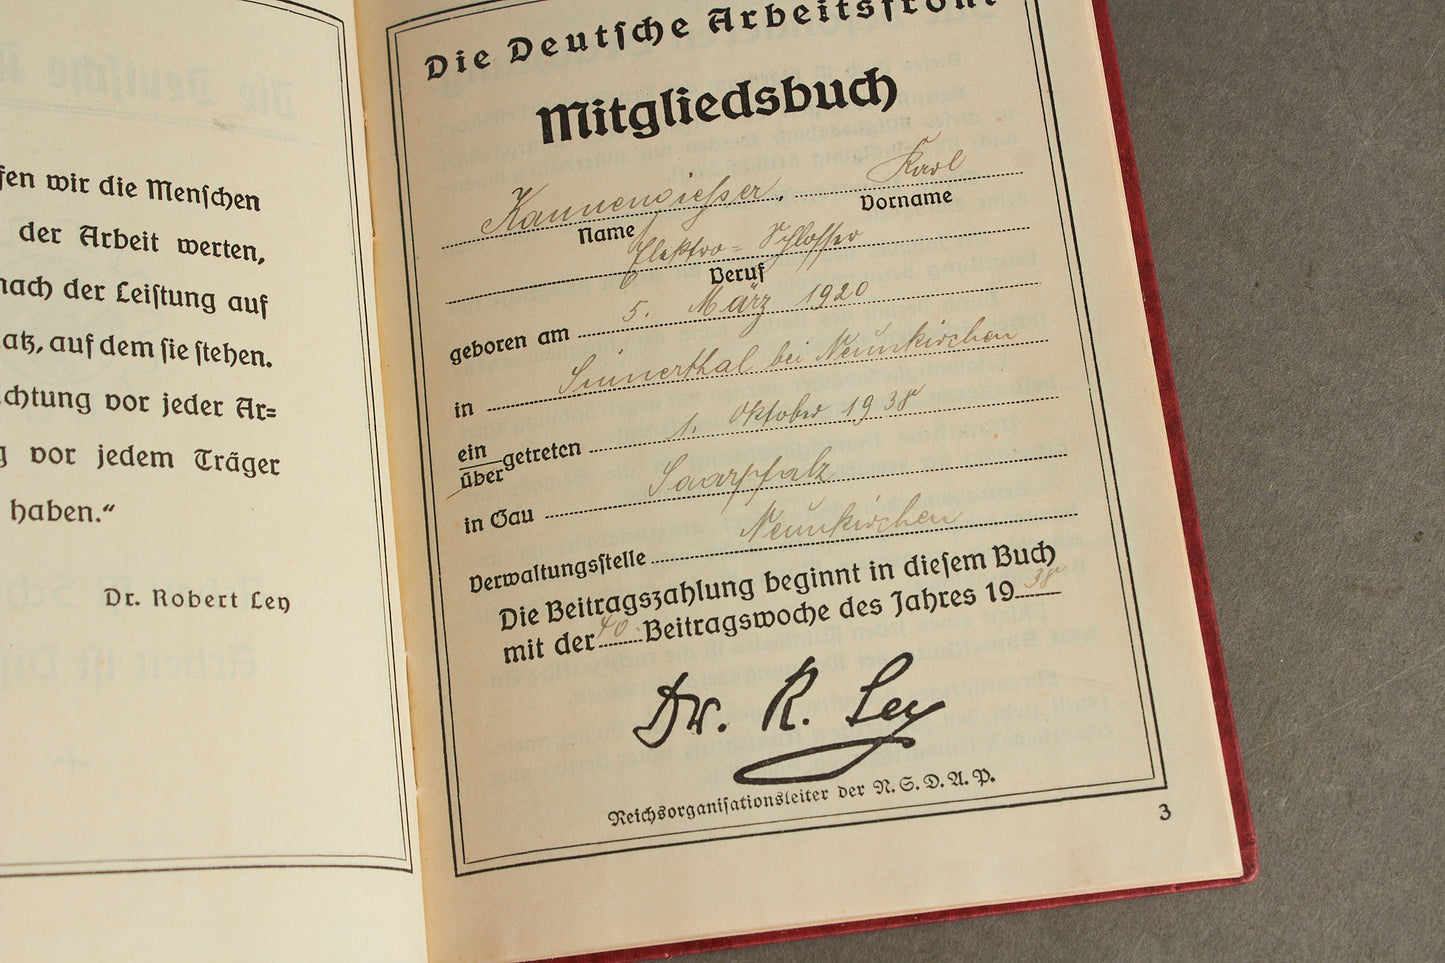 fen wir die Menſchen
der Arbeit werten,
nach der Leiſtung auf
atz, auf dem ſie ſtehen.
chtung vor jeder Ar=
g vor jedem Träger
haben.“
Dr. Robert Ley
Die Deutſche Arbeitsfront
Mitgliedsbuch
Kannengießer, Karl
Name Vorname
Elektro= Schloſſer
Beruf
geboren am 5. März 1920
in Sinnerthal bei Neunkirchen
ein
über getreten 1. Oktober 1938
in Gau Saarpfalz
Verwaltungsſtelle Neunkirchen
Die Beitragszahlung beginnt in dieſem Buch
mit der 40. Beitragswoche des Jahres 1938
Dr. R. Ley
Reichsorganiſationsleiter der N.S.D.A.P.
3